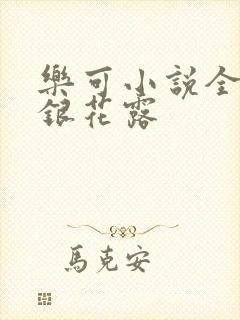 樂可小說全
銀花露
馬克安